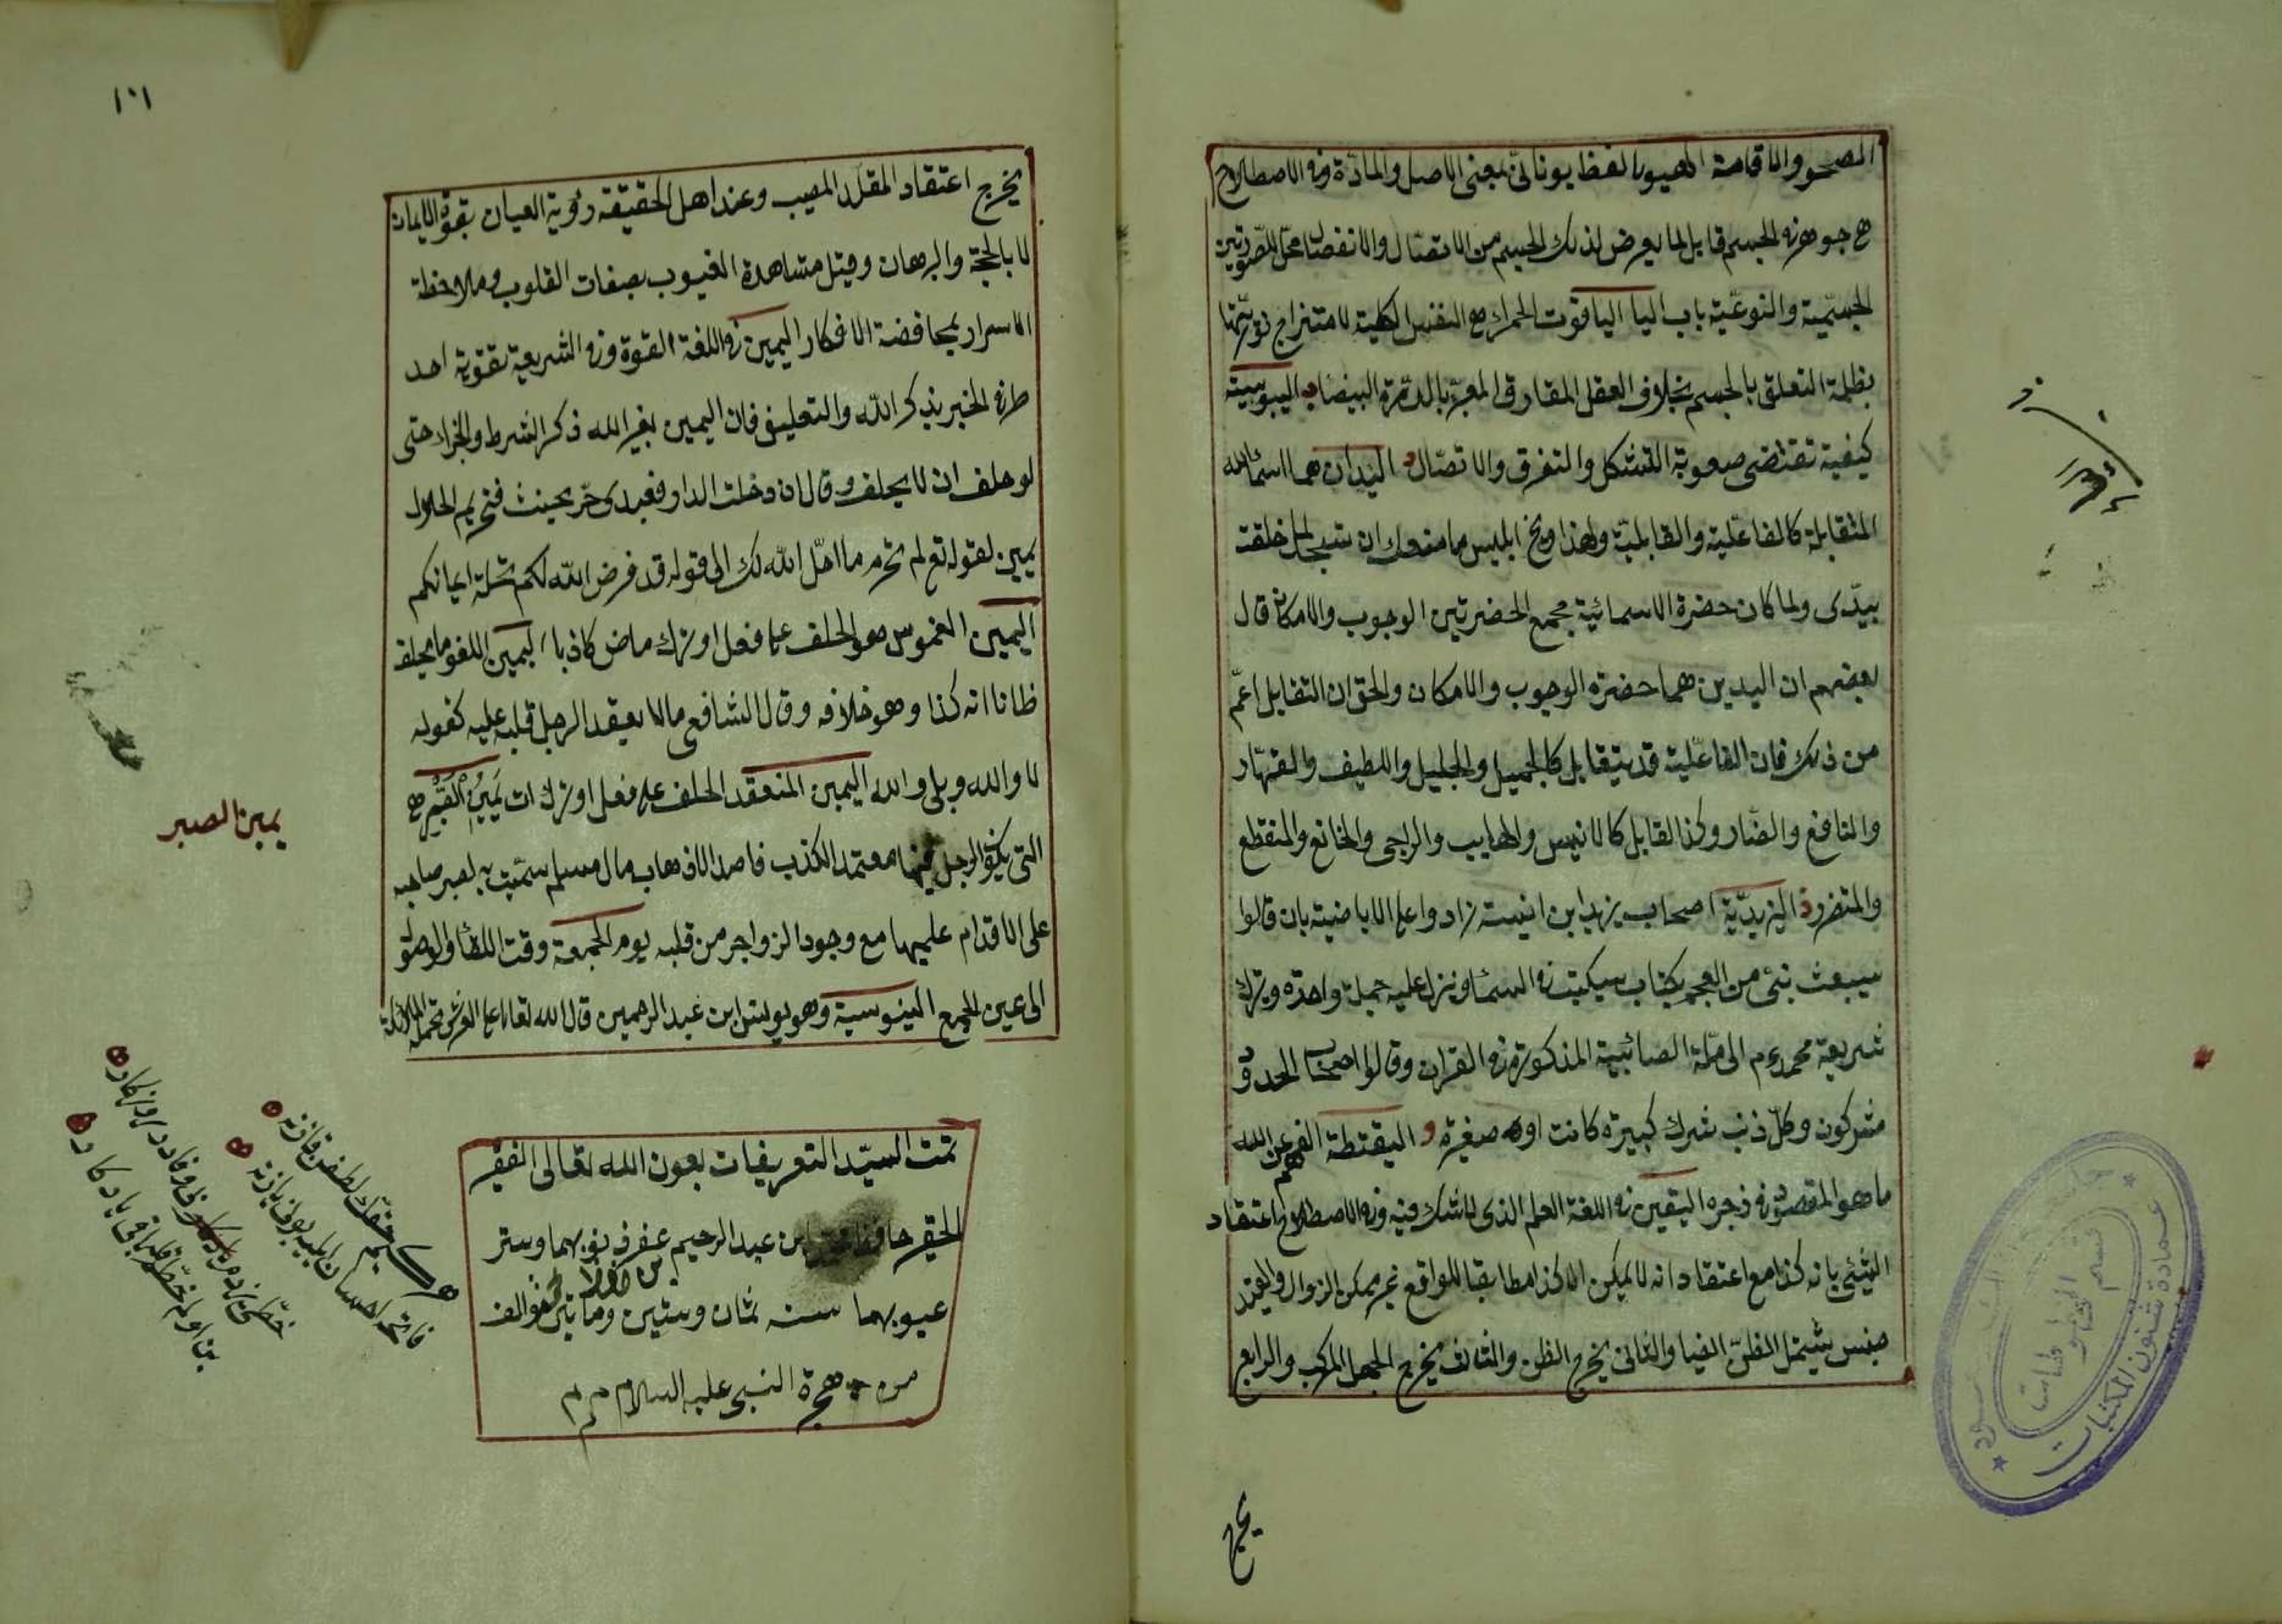 المصحو والاقامة الهيولا لفظ يوناني بمعنى الاصل والمادة وفي الاصطلاح
هي جوهر في الجسم قابل لما يعرض لذلك الجسم من الاتصال والانفصال محل للصورتين
الجسمية والنوعية باب اليا الياقوت الحمراء هي النفس الكلية لامتزاج نوريتها
بظلمة التعلق بالجسم بخلاف العقل المفارق المعبر بالدرة البيضاء اليبوسة
كيفية تقتضى صعوبة التشكل والتفرق والاتصال اليدان هما اسماء الله
المتقابلة كالفاعلية والقابلية ولهذا وبخ ابليس ما منعك ان تسجد لما خلقت
بيدى ولما كان حضرة الاسمائية مجمع الحضرتين الوجوب والامكان قال
بعضهم ان اليدين هما حضرة الوجوب والامكان والحق ان التقابل اعم
من ذلك فان الفاعلية قد يتقابل كالجميل والجليل واللطيف والقهار
والنافع والضار وكذا القابل كالانيس والهايب والراجى والخائف والمنتفع
والمتضرر اليزيدية اصحاب يزيد ابن انيسة زادوا على الاباضية بان قالوا
سيبعث نبى من العجم بكتاب سيكتب في السماء وينزل عليه جملة واحدة ويترك
شريعة محمد ءم الى ملة الصائبية المذكورة في القران وقالوا اصحاب الحدود
مشركون وكل ذنب شرك كبيرة كانت او صغيرة اليقظة الفهم عن الله
ما هو المقصود في زجره اليقين في اللغة العلم الذى لا شك فيه وفي الاصطلاح اعتقاد
الشئ بانه كذا مع اعتقاد انه لا يمكن الا كذا مطابقا للواقع غير ممكن الزوال والقيد
جنس يشتمل الظن ايضا والثانى يخرج الظن والثالث يخرج الجهل المركب والرابع
يخرج
١٠١
يخرج اعتقاد المقلد المصيب وعند اهل الحقيقة رؤية العيان بقوة الايمان
لا بالحجة والبرهان وقيل مشاهدة الغيوب بصفات القلوب وملاحظة
الاسرار بمحافظة الافكار اليمين في اللغة القوة وفي الشريعة تقوية احد
طرفي الخبر بذكر الله والتعليق فان اليمين بغير الله ذكر الشرط والجزاء حتى
لو حلف ان لا يحلف وقال ان دخلت الدار فعبدى حر يحنث فتحريم الحلال
يمين لقوله تع لم تحرم ما احل الله لك الى قوله قد فرض الله لكم تحلة ايمانكم
اليمين الغموس هو الحلف على فعل او ترك ماض كاذبا اليمين اللغو ما يحلف
ظانا انه كذا وهو خلافه وقال الشافعى ما لا يعقد الرجل قلبه عليه كقوله
لا والله وبلى والله اليمين المنعقد الحلف على فعل او ترك ات يمين الصبر هي
التى يكون الرجل فيها معتمد الكذب قاصدا لاذهاب مال مسلم سميت به لصبر صاحبه
على الاقدام عليها مع وجود الزواجر من قلبه يوم الجمعة وقت اللقاء والوصول
الى عين الجمع الينوسية وهو يونس ابن عبد الرحمن قال الله تعالى على العرش تحمله الملائكة
يمين الصبر
تمت السيد التعريفات بعون الله تعالى الفقير
الحقير حافظ بن عبد الرحيم غفر ذنوبهما وستر
عيوبهما سنة ثمان وستين ومائتين والف
من هجرة النبى عليه السلام م م م
عمادة شئون المكتبات
قسم المخطوطات